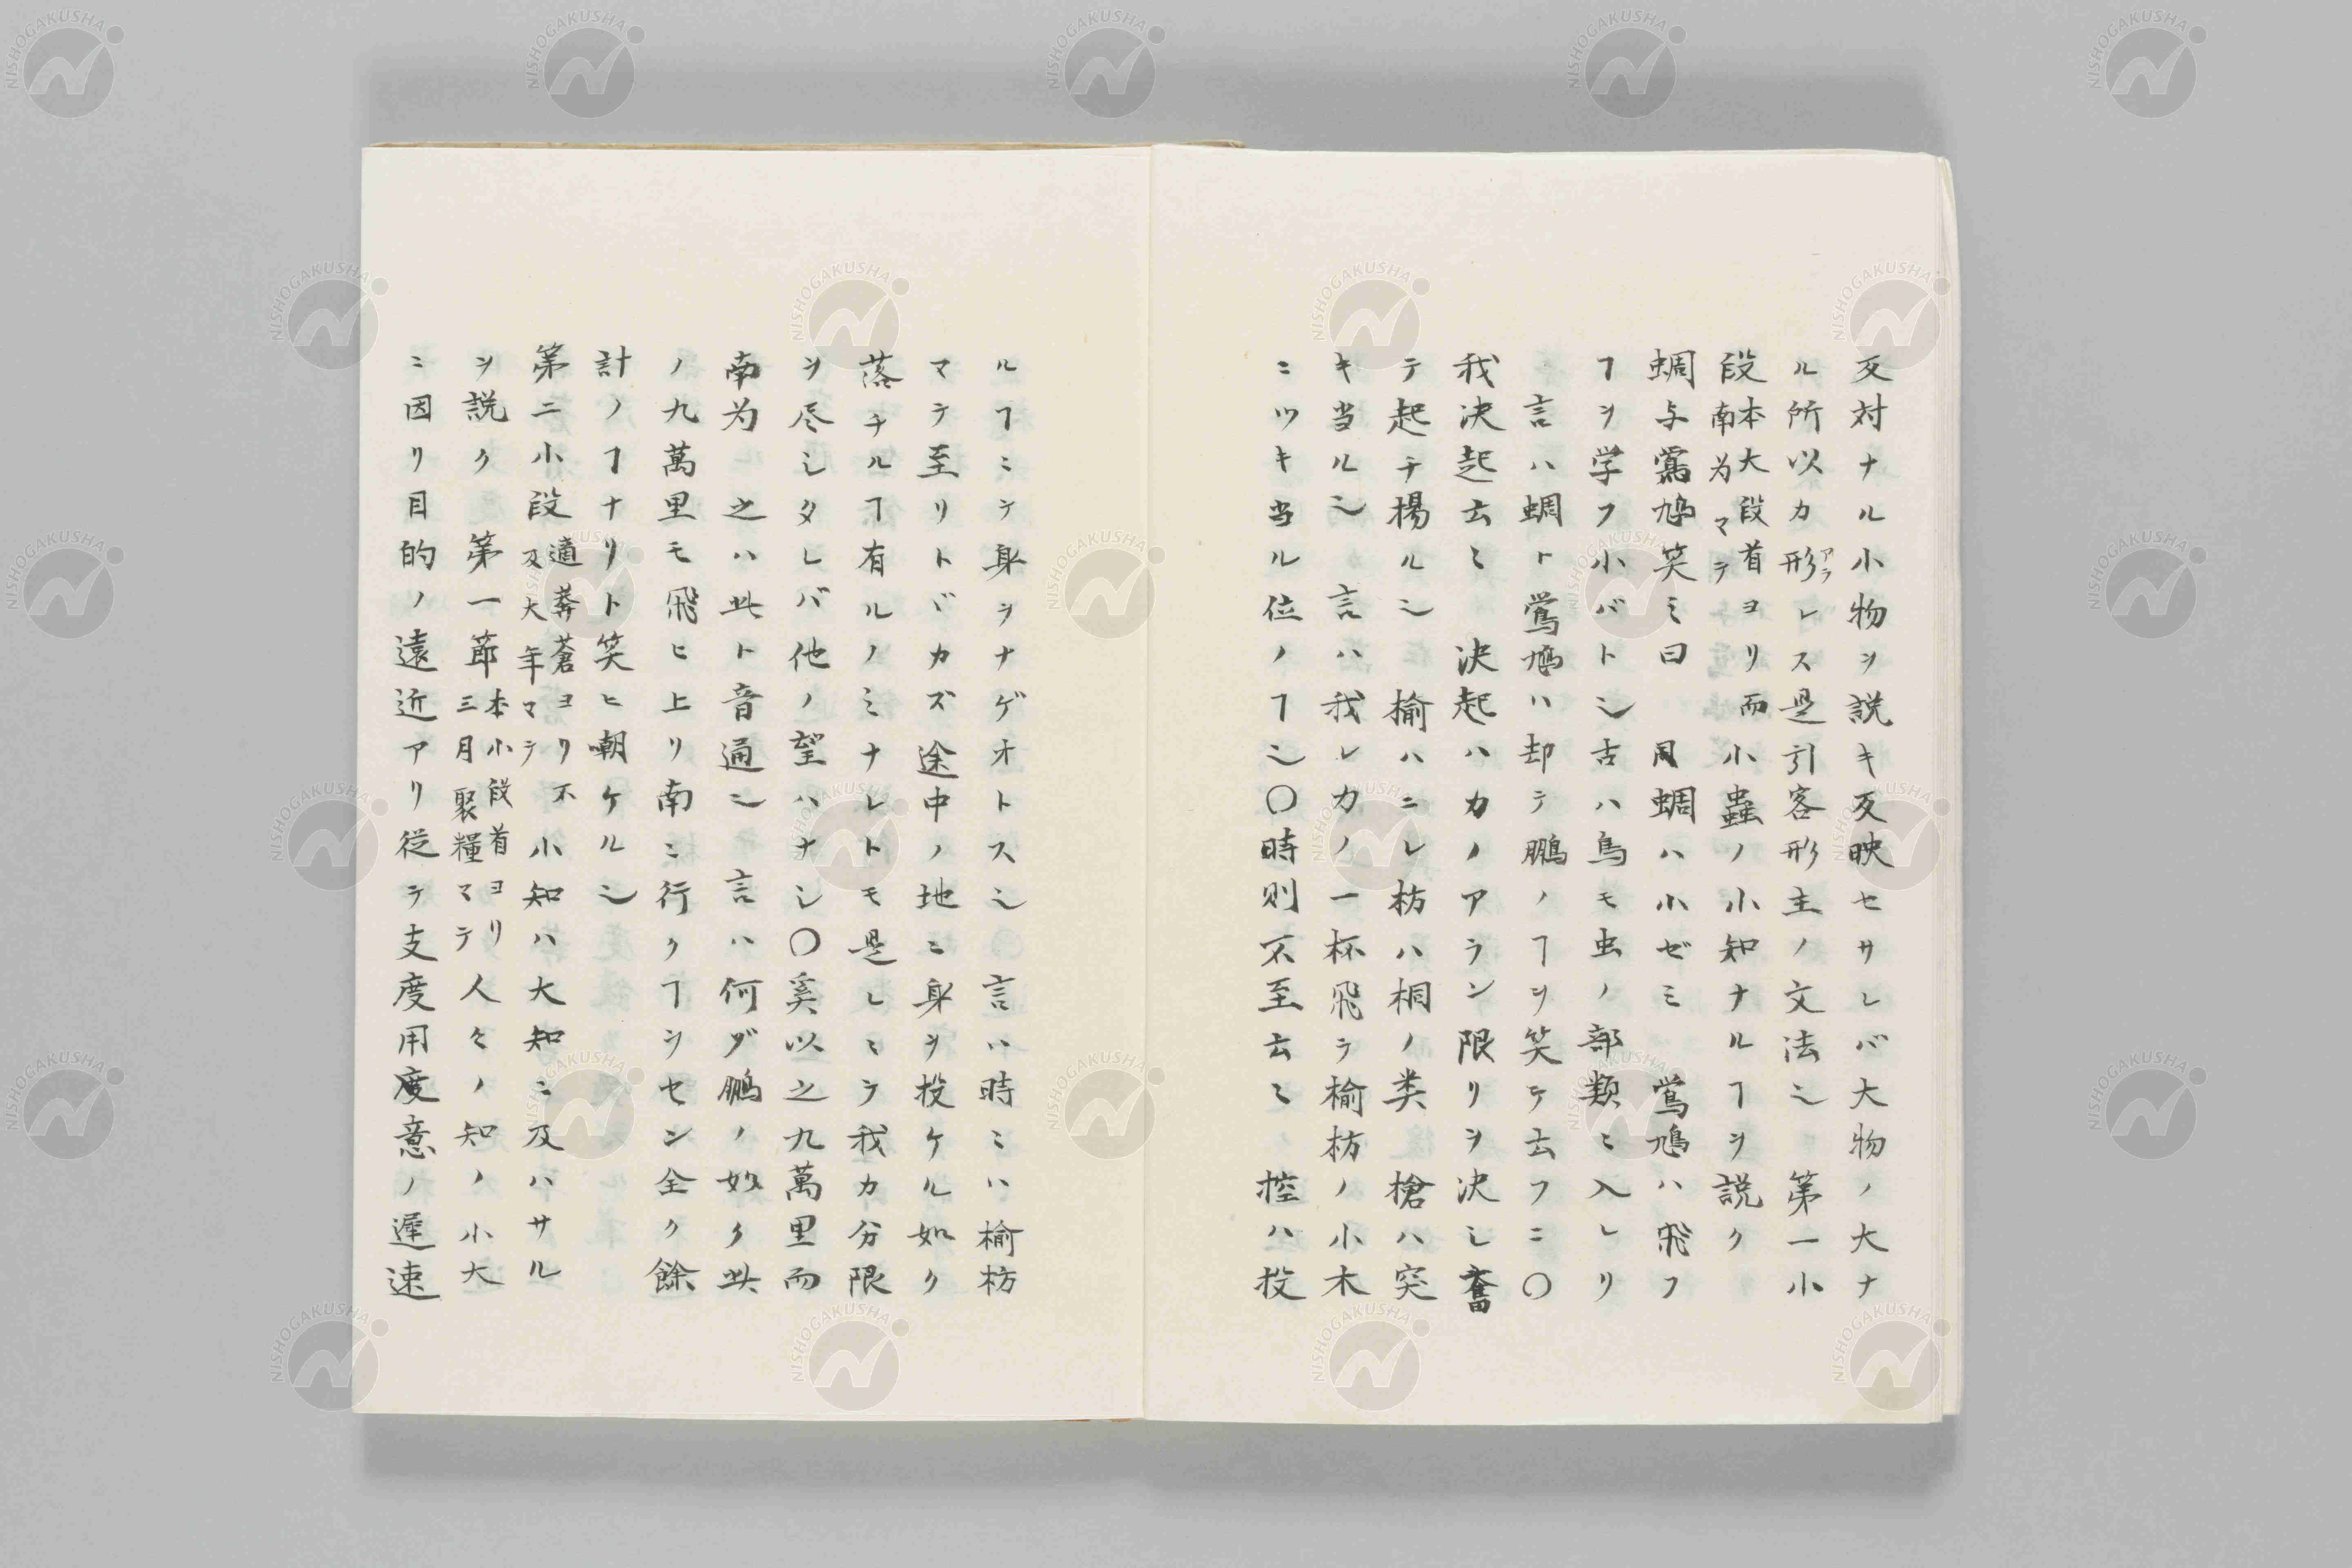 反対ナル小物ヲ説キ反映セサレバ大物ノ大ナ
ル所以カ形アラレス是引客形主ノ文法也 第一小
段本大段首ヨリ而南为マテ 小蟲ノ小知ナルヿヲ説ク
蜩与鷽鳩笑之曰 同蜩ハ小ゼミ 鷽鳩ハ飛フ
ヿヲ学フ小バト也古ハ鳥モ虫ノ部類ニ入レリ
言ハ蜩ト鷽鳩ハ却テ鵬ノヿヲ笑テ云フニ〇
我决起云々 决起ハカノアラン限リヲ决シ奮
テ起チ揚ル也 楡ハニレ枋ハ桐ノ类 槍ハ突
キ当ル也 言ハ我レカノ一杯飛テ楡枋ノ小木
ニツキ当ル位ノヿ也〇時則不至云々 控ハ投
ルヿニテ身ヲナゲオトス也 言ハ時ニハ楡枋
マテ至リトヾカズ途中ノ地ニ身ヲ投ケル如ク
落チルヿ有ルノミナレトモ是レニテ我カ分限
ヲ尽シタレバ他ノ望ハナシ〇奚以之九萬里而
南为 之ハ此ト音通也 言ハ何ダ鵬ノ如ク此
ノ九萬里モ飛ヒ上リ南ニ行クヿヲセン全ク餘
計ノヿナリト笑ヒ嘲ケル也
第二小段適莽蒼ヨリ不及大年マテ 小知ハ大知ニ及ハサル
ヲ説ク 第一節本小段首ヨリ三月聚糧マテ 人々ノ知ノ小大
ニ因リ目的ノ遠近アリ従テ支度用度意ノ遅速
NISHOGAKUSHA